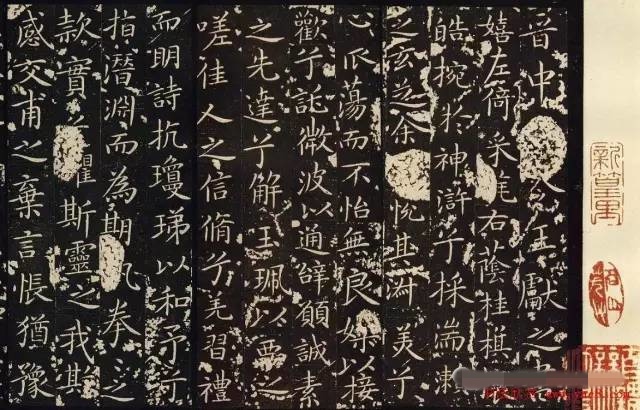 晉中令王獻之書
嬉左倚采旄右蔭桂旗
皓捥於神滸兮採湍瀨
之玄芝余悅其淑美兮
心蕩而不怡無良媒以接
歡兮託微波以通辭願誠素
之先達兮解玉珮以要之
嗟佳人之信脩兮羌習禮
而明詩抗瓊珶以和予兮
指潛淵而為期執拳々之
款實兮懼斯靈之我欺
感交甫之棄言悵猶豫